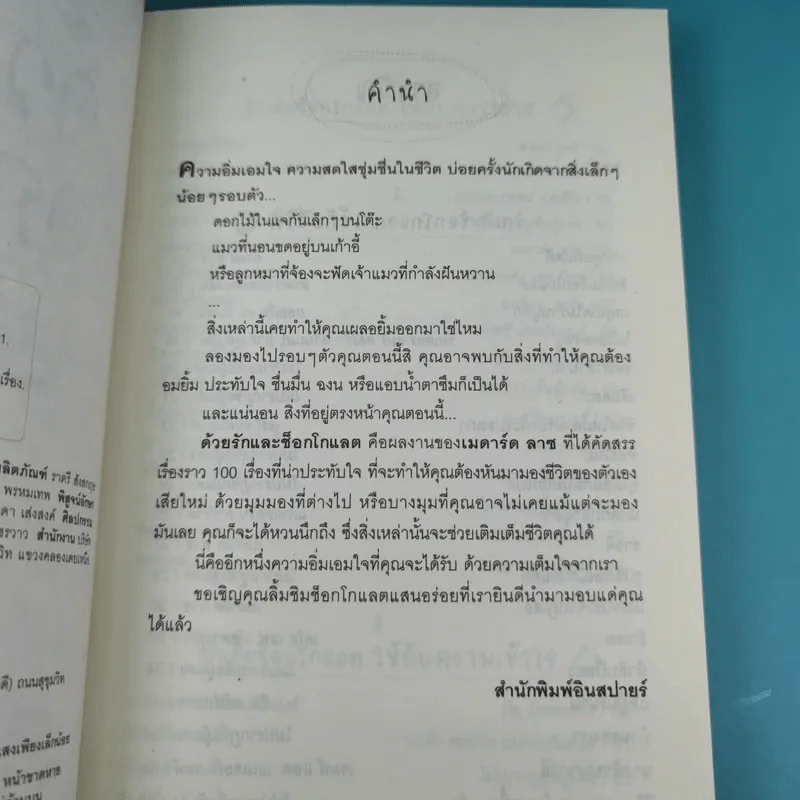 คำนำ
ความอิ่มเอมใจ ความสดใสชุ่มชื่นในชีวิต บ่อยครั้งนักเกิดจากสิ่งเล็กๆ
น้อยๆรอบตัว...
ดอกไม้ในแจกันเล็กๆบนโต๊ะ
แมวที่นอนขดอยู่บนเก้าอี้
หรือลูกหมาที่จ้องจะฟัดเจ้าแมวที่กำลังฝันหวาน
...
สิ่งเหล่านี้เคยทำให้คุณเผลอยิ้มออกมาใช่ไหม
ลองมองไปรอบๆตัวคุณตอนนี้สิ คุณอาจพบกับสิ่งที่ทำให้คุณต้อง
อมยิ้ม ประทับใจ ชื่นมื่น ฉงน หรือแอบน้ำตาซึมก็เป็นได้
และแน่นอน สิ่งที่อยู่ตรงหน้าคุณตอนนี้...
ด้วยรักและช็อกโกแลต คือผลงานของเมดาร์ด ลาซ ที่ได้คัดสรร
เรื่องราว 100 เรื่องที่น่าประทับใจ ที่จะทำให้คุณต้องหันมามองชีวิตของตัวเอง
เสียใหม่ ด้วยมุมมองที่ต่างไป หรือบางมุมที่คุณอาจไม่เคยแม้แต่จะมอง
มันเลย คุณก็จะได้หวนนึกถึง ซึ่งสิ่งเหล่านั้นจะช่วยเติมเต็มชีวิตคุณได้
นี่คืออีกหนึ่งความอิ่มเอมใจที่คุณจะได้รับ ด้วยความเต็มใจจากเรา
ขอเชิญคุณลิ้มชิมช็อกโกแลตแสนอร่อยที่เรายินดีนำมามอบแด่คุณ
ได้แล้ว
สำนักพิมพ์อินสปายร์
1.
เรื่อง.
ราตรี
พรหมเทพ พิสูจน์อักษร
ดา เส่งสงค์ ศิลปกรรม
สำนักงาน บริษัท
วิท แขวงคลองเตยเหนือ
ดี) ถนนสุขุมวิท
สงเพียงเล็กน้อย
หน้าขาดหาย